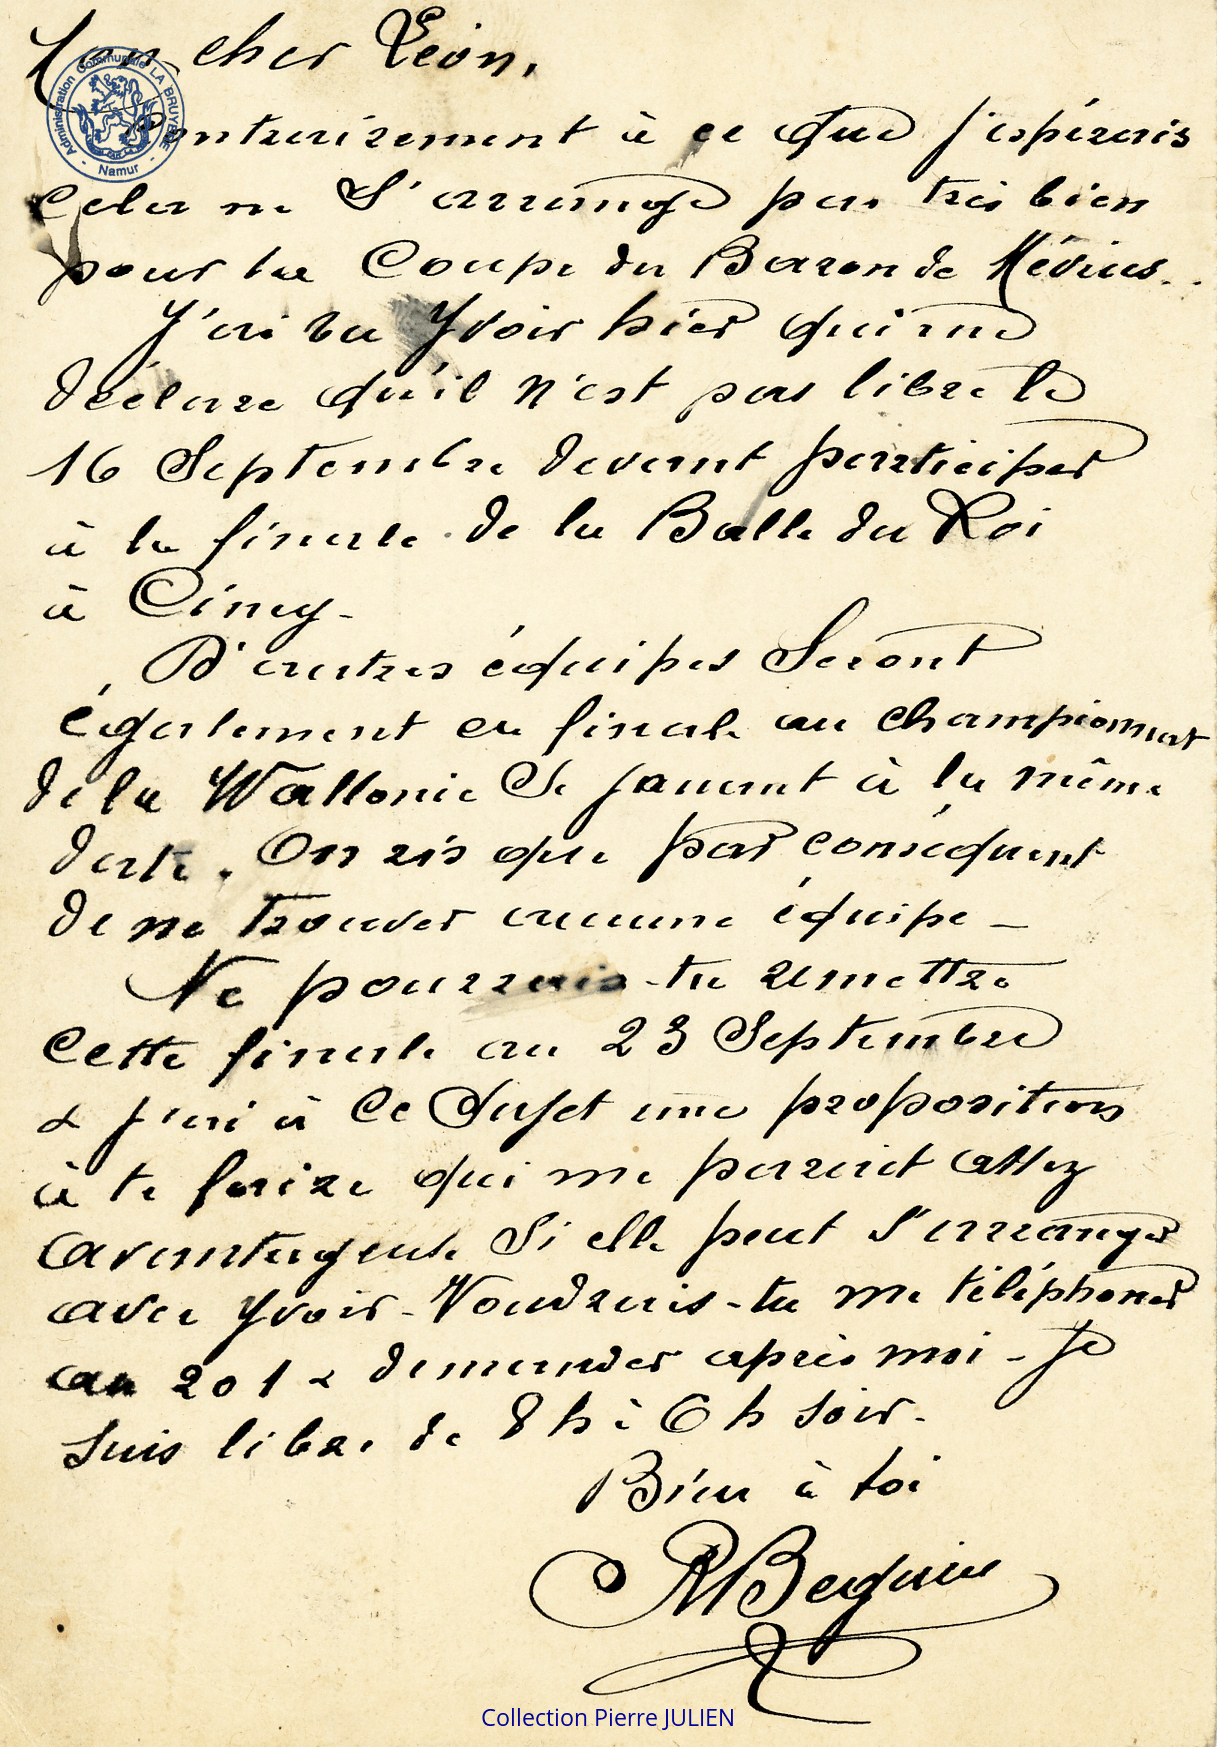 Mon cher Léon,
Contrairement à ce que j'espérais
Cela ne S'arrange pas très bien
pour la Coupe du Baron de Mévius..
J'ai vu Yvoir hier qui me
déclare qu'il n'est pas libre le
16 Septembre devant participer
à la finale de la Balle du Roi
à Ciney -
D'autres équipes Seront
également en finale au championnat
de la Wallonie Se jouant à la même
date. On ris que par conséquent
de ne trouver aucune équipe -
Ne pourrais-tu remettre
Cette finale au 23 Septembre
& j'ai à Ce Sujet une proposition
à te faire qui me parait assez
avantageuse Si elle peut S'arranger
avec Yvoir - Voudrais-tu me téléphoner
au 201 & demander après moi - Je
Suis libre de 8 h à 6 h soir -
Bien à toi
R Beguin
Administration Communale LA BRUYERE
- Namur -
Collection Pierre JULIEN